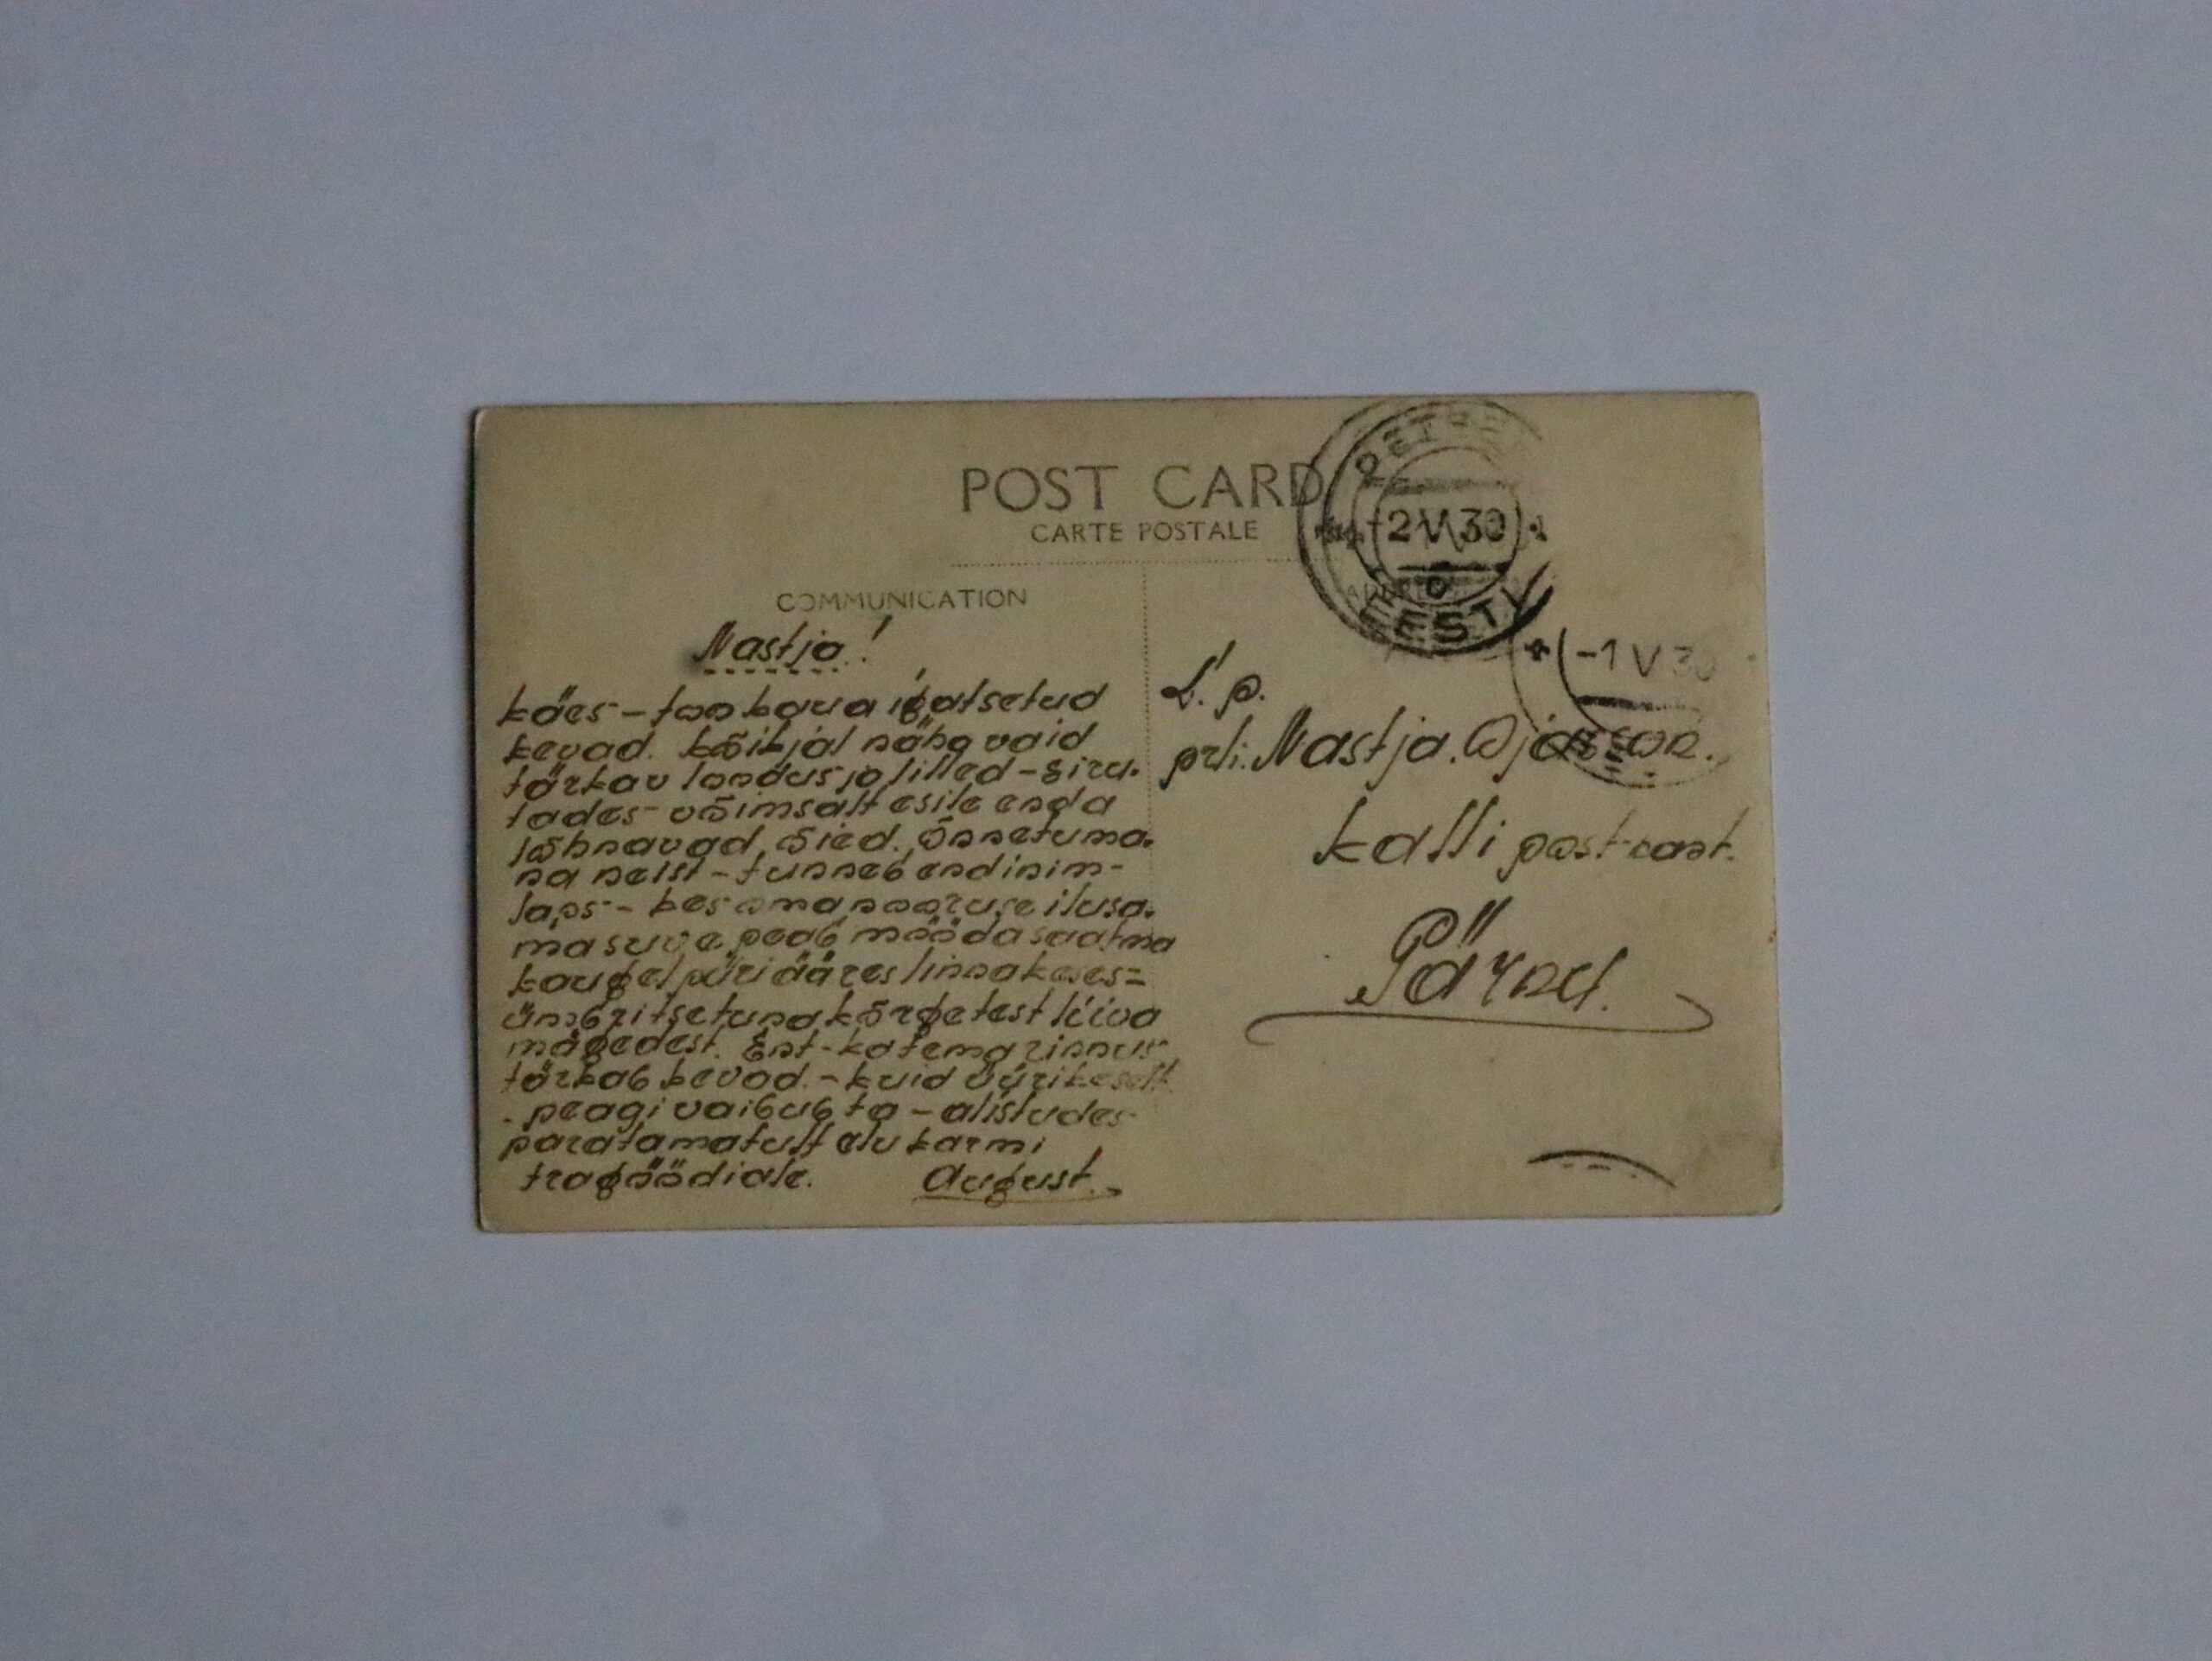 POST CARD
CARTE POSTALE
COMMUNICATION
Nastja!
käes – too kaua igatsetud
kevad. kõikjal näha vaid
tärkav loodus ja lilled – siru-
tades võimsalt esile enda
lõhnavad õied. Õnnetuma-
na neist – tunneb end inim-
laps – kes oma nooruse ilusa-
ma suve peab mööda saatma
kaugel piiriääres linnakeses=
ümbritsetuna kõrgetest liiva
mägedest. Ent – ka tema rinnus
tärkab kevad. – kuid üürikeselt
- peagi vaibub ta – alistudes
paratamatult elu karmi
tragöödiale. August.
PETSERI
-2 V 30
EESTI
-1 V 30
L. p.
prli. Nastja.
Kalli post-kont.
Pärnu.